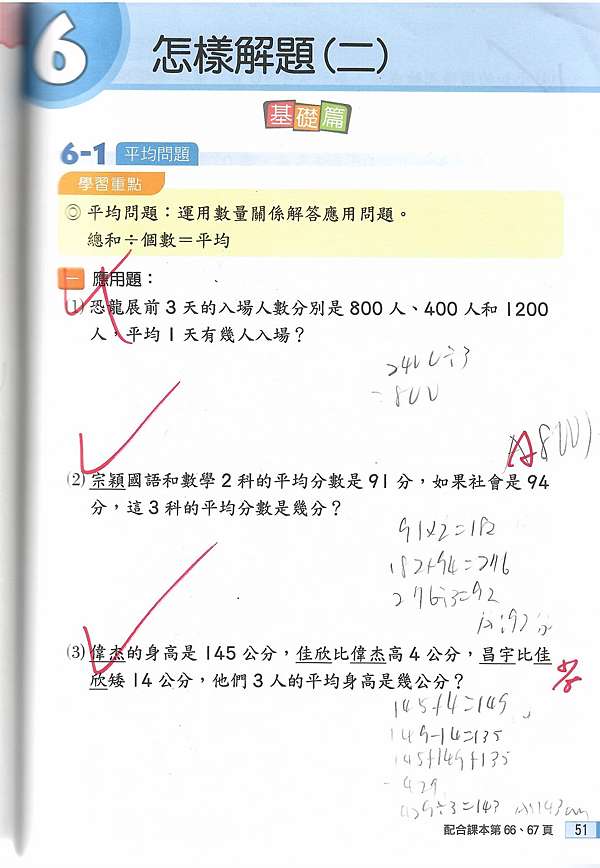 6
怎樣解題(二)
基礎篇
6-1 平均問題
學習重點
◎平均問題：運用數量關係解答應用問題。
總和÷個數＝平均
一 應用題：
(1) 恐龍展前3天的入場人數分別是800人、400人和1200
人，平均1天有幾人入場？
2400÷3
=800
A:800人
(2) 宗穎國語和數學2科的平均分數是91分，如果社會是94
分，這3科的平均分數是幾分？
91×2=182
182+94=276
276÷3=92
A:92分
(3) 偉杰的身高是145公分，佳欣比偉杰高4公分，昌宇比佳
欣矮14公分，他們3人的平均身高是幾公分？
145+4=149
149-14=135
145+149+135
=429
429÷3=143 A:143cm
配合課本第66、67頁 51